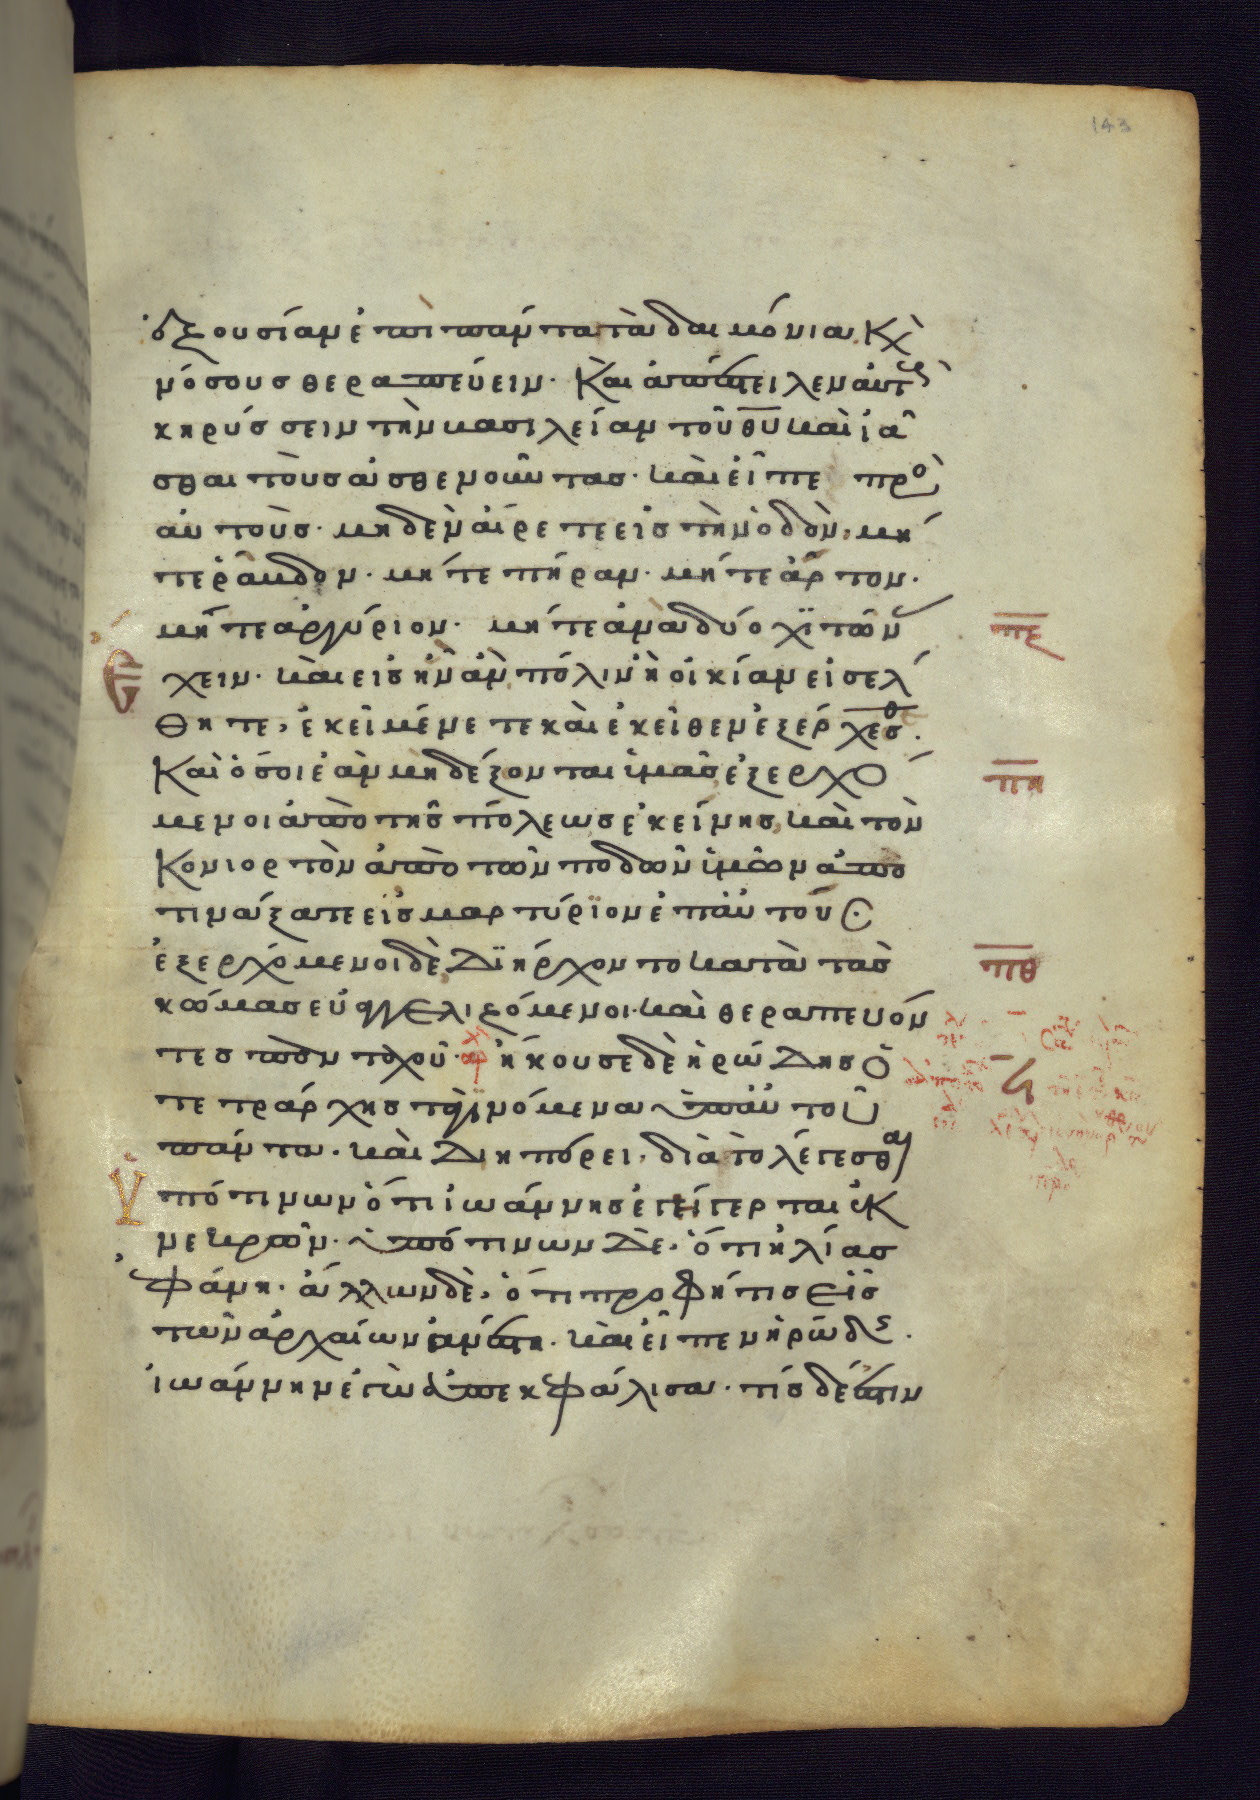 143
ἐξουσίαν ἐπὶ πάντα τὰ δαιμόνια κ(αὶ)
νόσους θεραπεύειν· Καὶ ἀπέστειλεν αὐτοὺς
κηρύσσειν τὴν βασιλείαν τοῦ θ̅υ̅ καὶ ἰᾶ
σθαι τοὺς ἀσθενοῦντας· καὶ εἶπε πρὸ(ς)
αὐτοὺς· μηδὲν αἴρετε εἰς τὴν ὁδὸν, μή
τε ῥάβδον· μήτε πήραν· μήτε ἄρτον·
μήτε ἀργύριον· μήτε ἀνὰ δύο χϊτῶν(ας) ἔ
χειν· καὶ εἰς ἣν ἂν πόλιν ἢ οἰκίαν εἰσέλ
θητε, ἐκεῖ μένετε καὶ ἐκεῖθεν ἐξέρχεσθ(ε).
Καὶ ὅσοι ἐὰν μὴ δέξονται ὑμᾶς ἐξερχό
μενοι ἀπὸ τῆς πόλεως ἐκείνης, καὶ τὸν
Κονιορτὸν ἀπὸ τῶν ποδῶν ὑμῶν ἀπο
τινάξατε εἰς μαρτύρϊον ἐπ' αὐτούς·
ἐξερχόμενοι δὲ Δϊήρχοντο κατὰ τὰς
κώμας εὐαγγελιζόμενοι· καὶ θεραπεύον
τες πανταχοῦ· ἤκουσε δὲ ἡρώΔης ὁ
τετράρχης τὰ γινόμενα ὑπ' αὐτοῦ
πάντα· καὶ Διηπόρει, διὰ τὸ λέγεσθαι
Ὑπό τινων ὅτι ἰωάννης ἐγείγερται ἐκ
νεκρῶν· ὑπό τινων Δὲ, ὅτι ἠλίας
ἐφάνη· ἄλλων δὲ, ὅτι προφήτης εἷς
τῶν ἀρχαίων ἀνέστη· καὶ εἶπεν ἡρώδης·
ἰωάννην ἐγὼ ἀπεκεφάλισα· τίς δέ ἐστιν
π̅ζ̅
π̅η̅
π̅θ̅